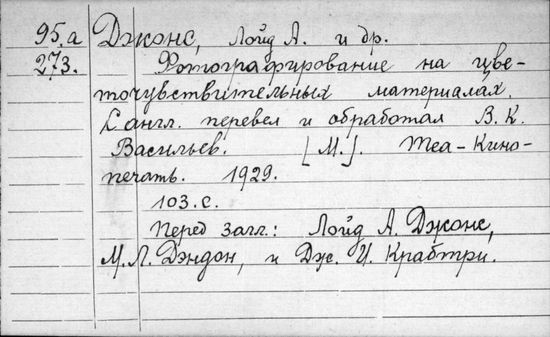 95.а Джонс, Лойд А. и др.
273. Фотографирование на цве-
точувствительных материалах.
С англ. перевел и обработал В. К.
Васильев. [М.]. Теа-Кино-
печать. 1929.
103.с.
Перед загл.: Лойд А. Джонс,
М. Л. Дэндон, и Дж. И. Крабтри.